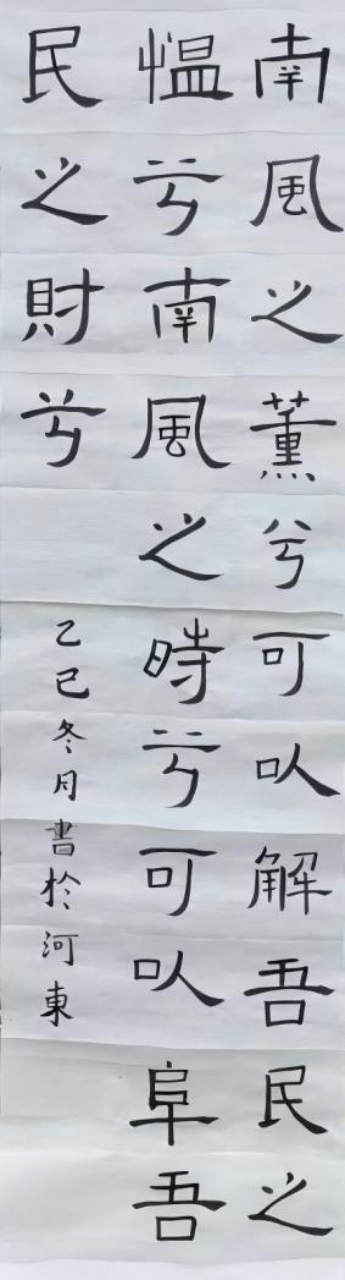 南風之薰兮可以解吾民之
愠兮南風之時兮可以阜吾
民之財兮
乙巳冬月書於河東